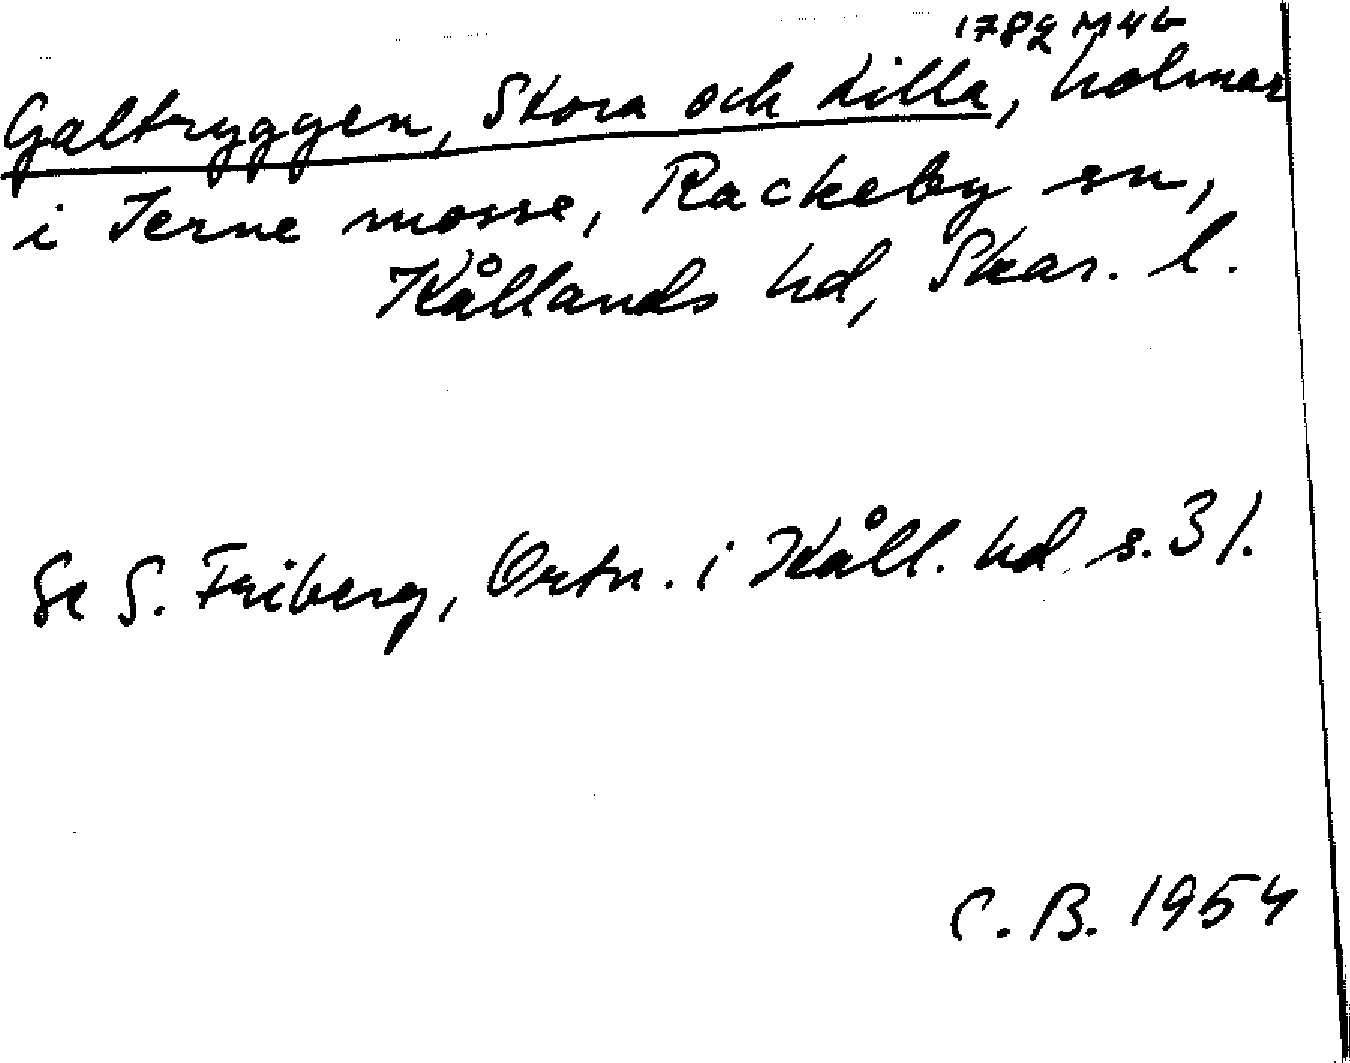 1782 M46
Galtryggen, Stora och Lilla, holmar
i Terne mosse, Rackeby sn,
Kållands hd, Skar. l.
Se S. Friberg, Ortn. i Kåll. hd s. 31.
C. B. 1954